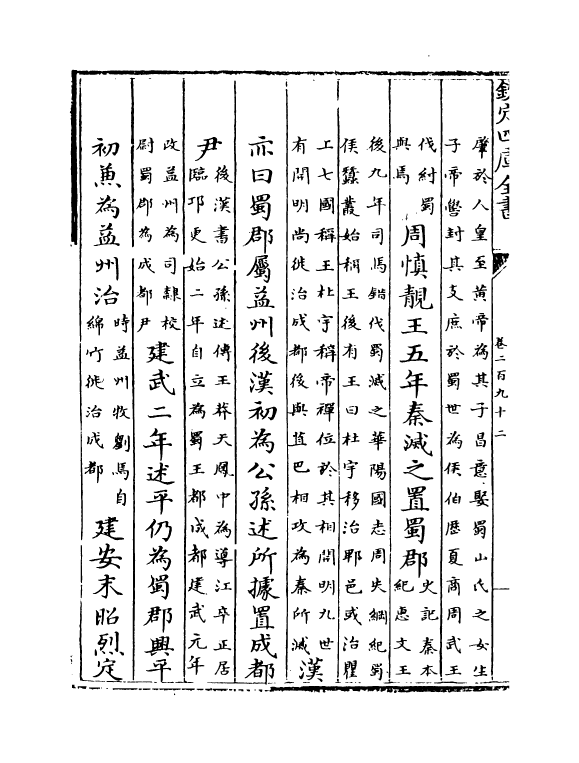 欽定四庫全書
卷二百九十二
肇於人皇至黄帝為其子昌意娶蜀山氏之女生
子帝嚳封其支庶於蜀世為侯伯歴夏商周武王
伐紂蜀
與焉
周慎靚王五年秦滅之置蜀郡
史記秦本
紀惠文王
後九年司馬錯伐蜀滅之華陽國志周失綱紀蜀
侯蠶叢始稱王後有王曰杜宇移治郫邑或治瞿
工七國稱王杜宇稱帝禪位於其相開明九世
有開明尚徙治成都後與苴巴相攻為秦所滅
漢
亦曰蜀郡屬益州後漢初為公孫述所據置成都
尹
後漢書公孫述傳王莽天鳳中為導江卒正居
臨邛更始二年自立為蜀王都成都建武元年
改益州為司隸校
尉蜀郡為成都尹
建武二年述平仍為蜀郡興平
初兼為益州治
時益州牧劉馬自
綿竹徙治成都
建安末昭烈定